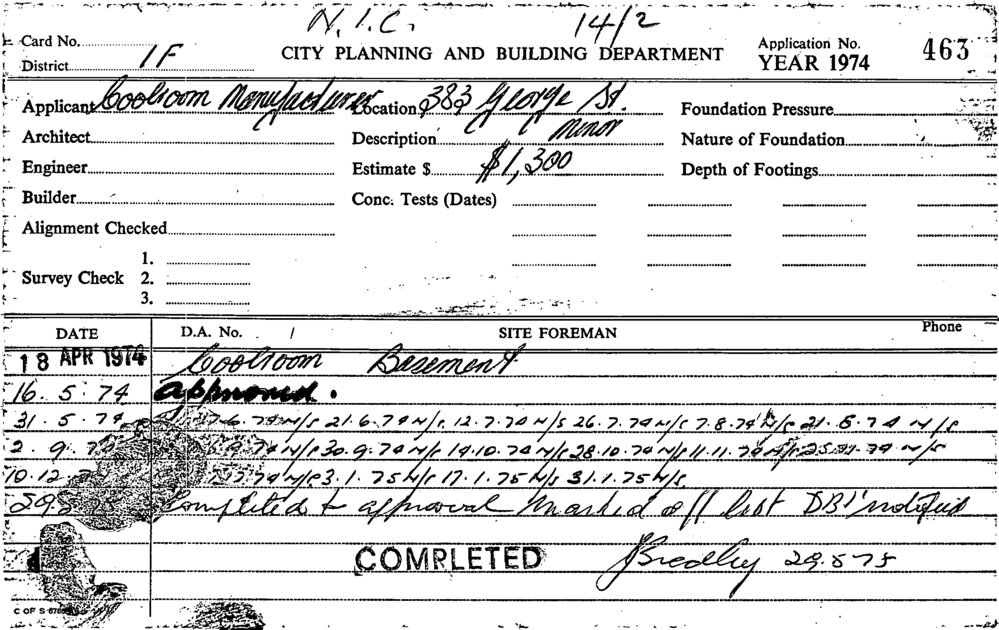 N.I.C. 14/2
Card No.
District 1F
CITY PLANNING AND BUILDING DEPARTMENT
Application No. 463
YEAR 1974
Applicant Coolroom Manufacturer Location 383 George St. Foundation Pressure
Architect Description Minor Nature of Foundation
Engineer Estimate $ $1,300 Depth of Footings
Builder Conc. Tests (Dates)
Alignment Checked
Survey Check 1.
2.
3.
DATE D.A. No. / SITE FOREMAN Phone
18 APR 1974 Coolroom Basement
16. 5. 74 approved.
31. 5. 74 7.6.74 N/S 21.6.74 N/S 12.7.74 N/S 26.7.74 N/S 7.8.74 N/S 21.8.74 N/S
2. 9. 74 N/S 30.9.74 N/S 14.10.74 N/S 28.10.74 N/S 11.11.74 N/S 25.11.74 N/S
10.12. 74 N/S 3.1.75 N/S 17.1.75 N/S 31.1.75 N/S
29.8 Completed to approval Marked off list DBI notified
COMPLETED JBradley 29.8.75
C OF S